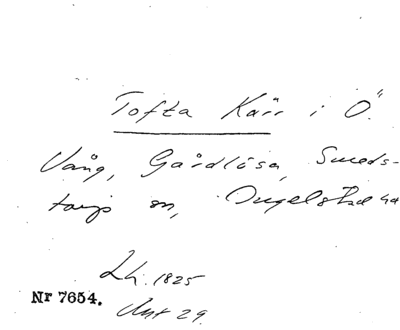 Tofta Kärr i Ö.
Vång, Gårdlösa, Smeds-
torp sn, Ingelstad hd
Lh. 1825
Nr 7654.
Akt 29